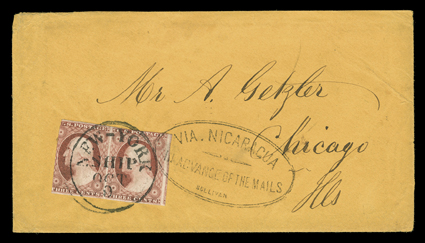 Mr A. Getzler
Chicago
Ills
VIA. NICARAGUA
ADVANCE OF THE MAILS
SULLIVAN
NEW-YORK
SHIP
OCT
THREE CENTS THREE CENTS